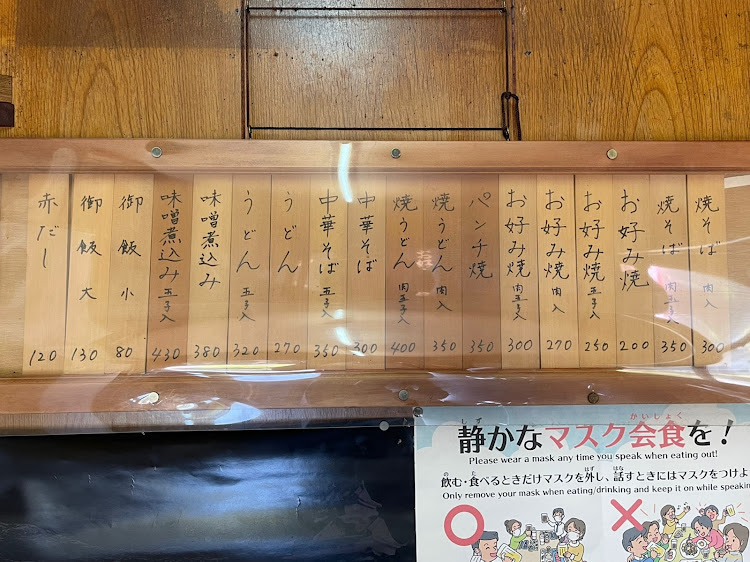 焼そば 肉入 300
焼そば 肉玉子入 350
お好み焼 200
お好み焼 玉子入 250
お好み焼 肉入 270
お好み焼 肉玉子入 300
パンチ焼 350
焼うどん 肉入 350
焼うどん 肉玉子入 400
中華そば 300
中華そば 玉子入 350
うどん 270
うどん 玉子入 320
味噌煮込み 380
味噌煮込み 玉子入 430
御飯 小 80
御飯 大 130
赤だし 120
しず かいしょく
静かなマスク会食を!
Please wear a mask any time you speak when eating out!
の た はず はな
飲む・食べるときだけマスクを外し、話すときにはマスクをつけよ
Only remove your mask when eating/drinking and keep it on while speakin